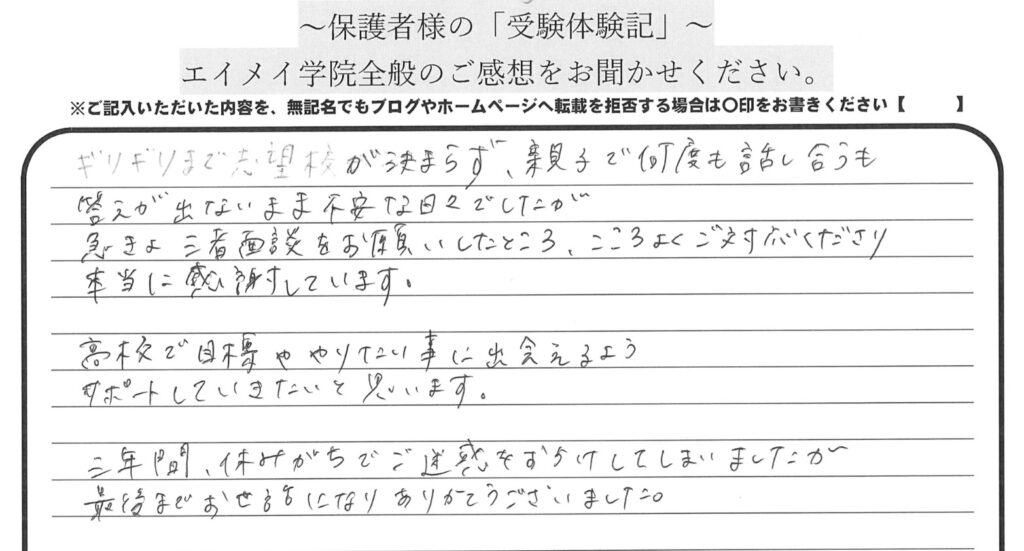 ～保護者様の「受験体験記」～
エイメイ学院全般のご感想をお聞かせください。
※ご記入いただいた内容を、無記名でもブログやホームページへ転載を拒否する場合は〇印をお書きください【　　　】
ギリギリまで志望校が決まらず、親子で何度も話し合うも
答えが出ないまま不安な日々でしたが
急きょ三者面談をお願いしたところ、こころよくご対応くださり
本当に感謝しています。
高校で目標ややりたい事に出会えるよう
サポートしていきたいと思います。
三年間、休みがちでご迷惑をおかけしてしまいましたが
最後までお世話になりありがとうございました。